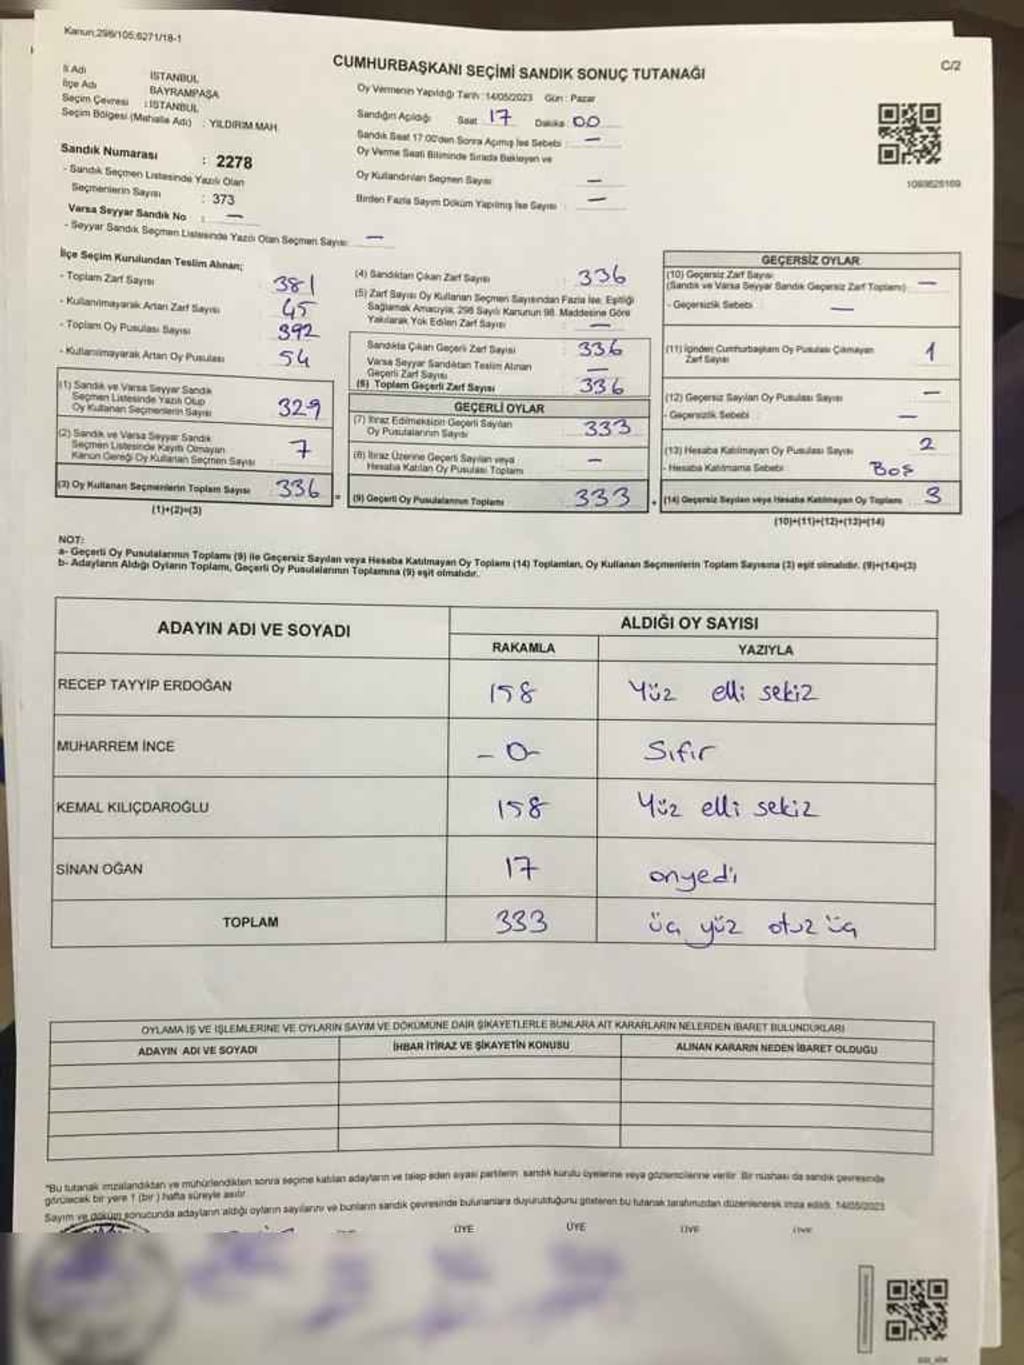 Kanun:298/105;6271/18-1
CUMHURBAŞKANI SEÇİMİ SANDIK SONUÇ TUTANAĞI
C/2
İl Adı : İSTANBUL
İlçe Adı : BAYRAMPAŞA
Seçim Çevresi : İSTANBUL
Seçim Bölgesi (Mahalle Adı) : YILDIRIM MAH.
Sandık Numarası : 2278
- Sandık Seçmen Listesinde Yazılı Olan
Seçmenlerin Sayısı : 373
Varsa Seyyar Sandık No : —
- Seyyar Sandık Seçmen Listesinde Yazılı Olan Seçmen Sayısı: —
Oy Vermenin Yapıldığı Tarih : 14/05/2023 Gün : Pazar
Sandığın Açıldığı Saat : 17 Dakika : 00
Sandık Saat 17:00'den Sonra Açılmış İse Sebebi : —
Oy Verme Saati Bitiminde Sırada Bekleyen ve
Oy Kullandırılan Seçmen Sayısı : —
Birden Fazla Sayım Döküm Yapılmış İse Sayısı : —
İlçe Seçim Kurulundan Teslim Alınan;
- Toplam Zarf Sayısı : 381
- Kullanılmayarak Artan Zarf Sayısı : 45
- Toplam Oy Pusulası Sayısı : 392
- Kullanılmayarak Artan Oy Pusulası : 54
(1) Sandık ve Varsa Seyyar Sandık
Seçmen Listesinde Yazılı Olup
Oy Kullanan Seçmenlerin Sayısı : 329
(2) Sandık ve Varsa Seyyar Sandık
Seçmen Listesinde Kayıtlı Olmayan
Kanun Gereği Oy Kullanan Seçmen Sayısı : 7
(3) Oy Kullanan Seçmenlerin Toplam Sayısı : 336
(1)+(2)=(3)
(4) Sandıktan Çıkan Zarf Sayısı : 336
(5) Zarf Sayısı Oy Kullanan Seçmen Sayısından Fazla İse, Eşitliği
Sağlamak Amacıyla; 298 Sayılı Kanunun 98. Maddesine Göre
Yakılarak Yok Edilen Zarf Sayısı : —
Sandıkta Çıkan Geçerli Zarf Sayısı : 336
Varsa Seyyar Sandıktan Teslim Alınan
Geçerli Zarf Sayısı : —
(6) Toplam Geçerli Zarf Sayısı : 336
GEÇERLİ OYLAR
(7) İtiraz Edilmeksizin Geçerli Sayılan
Oy Pusulalarının Sayısı : 333
(8) İtiraz Üzerine Geçerli Sayılan veya
Hesaba Katılan Oy Pusulası Toplamı : —
= (9) Geçerli Oy Pusulalarının Toplamı : 333 +
GEÇERSİZ OYLAR
(10) Geçersiz Zarf Sayısı
(Sandık ve Varsa Seyyar Sandık Geçersiz Zarf Toplamı) : —
- Geçersizlik Sebebi : —
(11) İçinden Cumhurbaşkanı Oy Pusulası Çıkmayan
Zarf Sayısı : 1
(12) Geçersiz Sayılan Oy Pusulası Sayısı : —
- Geçersizlik Sebebi : —
(13) Hesaba Katılmayan Oy Pusulası Sayısı : 2
- Hesaba Katılmama Sebebi : Boş
(14) Geçersiz Sayılan veya Hesaba Katılmayan Oy Toplamı : 3
(10)+(11)+(12)+(13)=(14)
NOT:
a- Geçerli Oy Pusulalarının Toplamı (9) ile Geçersiz Sayılan veya Hesaba Katılmayan Oy Toplamı (14) Toplamları, Oy Kullanan Seçmenlerin Toplam Sayısına (3) eşit olmalıdır. (9)+(14)=(3)
b- Adayların Aldığı Oyların Toplamı, Geçerli Oy Pusulalarının Toplamına (9) eşit olmalıdır.
ADAYIN ADI VE SOYADI ALDIĞI OY SAYISI
RAKAMLA YAZIYLA
RECEP TAYYİP ERDOĞAN 158 Yüz elli sekiz
MUHARREM İNCE - 0 - Sıfır
KEMAL KILIÇDAROĞLU 158 Yüz elli sekiz
SİNAN OĞAN 17 onyedi
TOPLAM 333 üç yüz otuz üç
OYLAMA İŞ VE İŞLEMLERİNE VE OYLARIN SAYIM VE DÖKÜMÜNE DAİR ŞİKAYETLERLE BUNLARA AİT KARARLARIN NELERDEN İBARET BULUNDUKLARI
ADAYIN ADI VE SOYADI İHBAR İTİRAZ VE ŞİKAYETİN KONUSU ALINAN KARARIN NEDEN İBARET OLDUĞU
*Bu tutanak imzalandıktan ve mühürlendikten sonra seçime katılan adayların ve talep eden siyasi partilerin sandık kurulu üyelerine veya gözlemcilerine verilir. Bir nüshası da sandık çevresinde
görülecek bir yere 1 (bir) hafta süreyle asılır.
Sayım ve döküm sonucunda adayların aldığı oyların sayılarını ve bunların sandık çevresinde bulunanlara duyurulduğunu gösteren bu tutanak tarafımızdan düzenlenerek imza edildi. 14/05/2023
ÜYE ÜYE ÜYE ÜYE